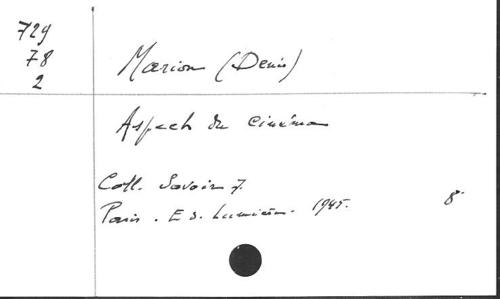 729
78
2
Marion (Denis)
Aspects du cinéma
Coll. Savoir 7.
Paris. Ed. Lumière. 1945. 8°